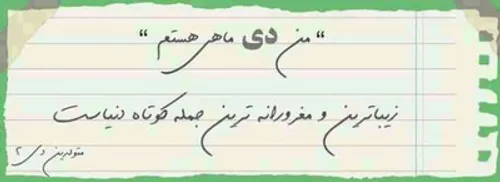 " من دی ماهی هستم "
زیباترین و مغرورانه ترین جمله کوتاه دنیاست
متولدین دی ۲